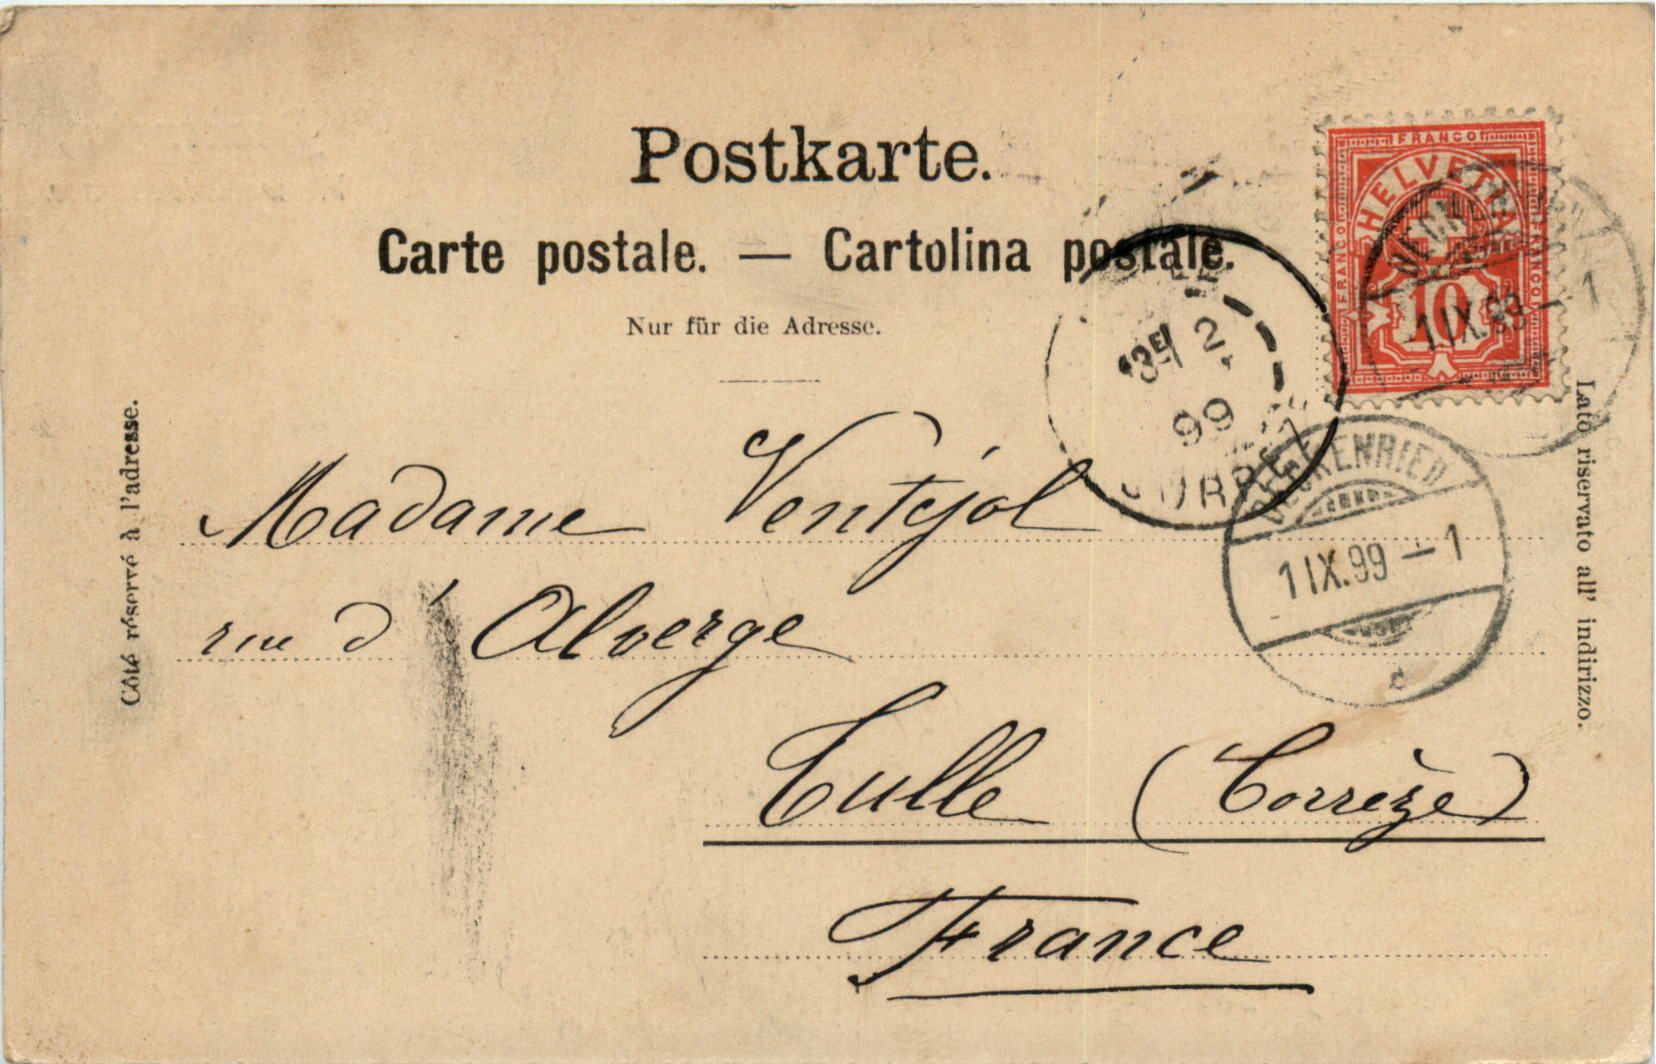 Postkarte.
Carte postale. — Cartolina postale.
Nur für die Adresse.
FRANCO
FRANCO
FRANCO
HELVETIA
10
1 IX.99 – 1
2
99
CORREZE
BECKENRIED
1 IX.99 – 1
Côté réservé à l'adresse.
Lato riservato all' indirizzo.
Madame Ventéjol
rue d'Alverge
Tulle (Corrèze)
France